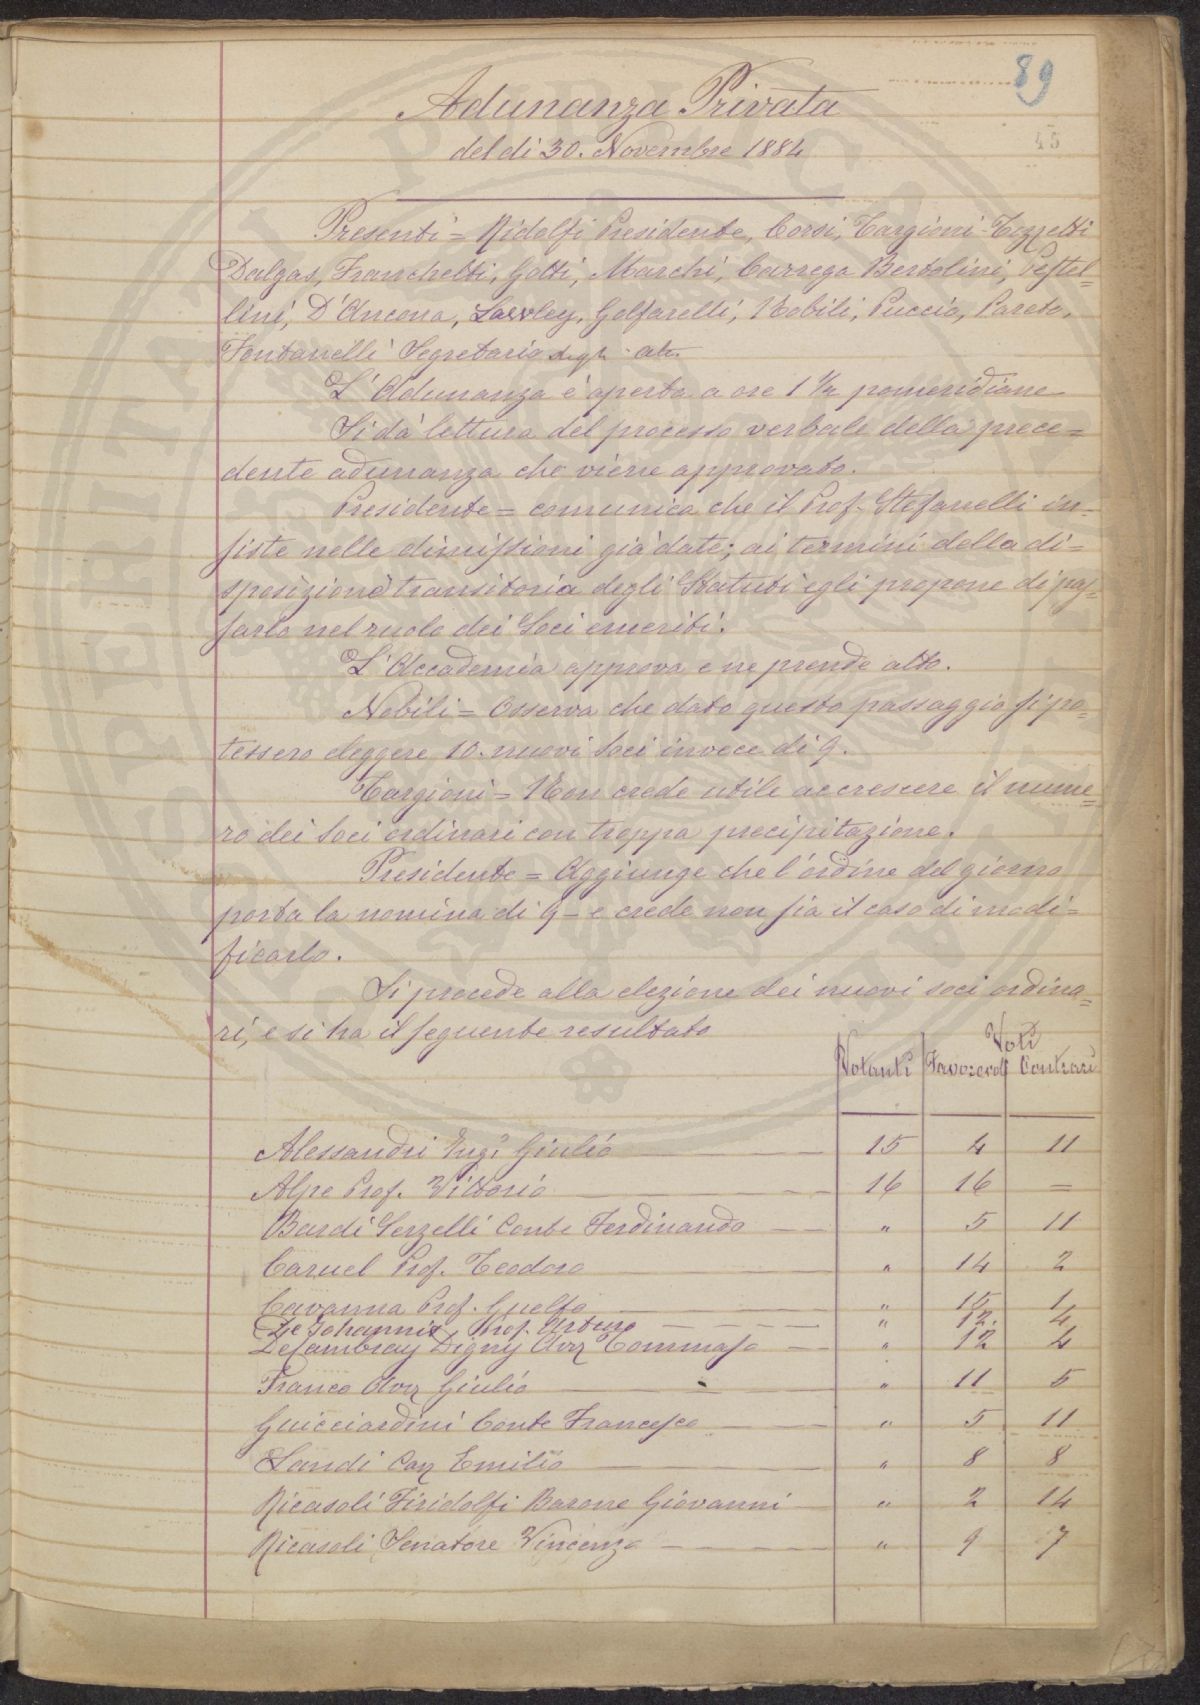 89
45
Adunanza Privata
del dì 30. Novembre 1884
Presenti = Ridolfi Presidente, Corsi, Targioni-Tozzetti
Dalgas, Franchetti, Gotti, Marchi, Carrega Bertolini, Pestel=
lini, D'Ancona, Lawley, Golfarelli, Nobili, Puccio, Pareto,
Fontanelli Segretario degli atti.
L'Adunanza è aperta a ore 1 1/2 pomeridiane
Si dà lettura del processo verbale della prece=
dente adunanza che viene approvato.
Presidente = comunica che il Prof. Stefanelli in-
siste nelle dimissioni già date; ai termini della di=
sposizione transitoria degli Statuti egli propone di pas=
sarlo nel ruolo dei Soci emeriti.
L'Accademia approva e ne prende atto.
Nobili = Osserva che dato questo passaggio si po=
tessero eleggere 10. nuovi Soci invece di 9.
Targioni = Non crede utile accrescere il nume=
ro dei Soci ordinari con troppa precipitazione.
Presidente = Aggiunge che l'ordine del giorno
porta la nomina di 9 - e crede non sia il caso di modi=
ficarlo.
Si procede alla elezione dei nuovi soci ordina=
ri, e si ha il seguente resultato
Voti
Votanti Favorevoli Contrari
Alessandri Ing. Giulio 15 4 11
Alpe Prof. Vittorio 16 16 =
Bardi Serzelli Conte Ferdinando " 5 11
Caruel Prof. Teodoro " 14 2
Cavanna Prof. Guelfo " 15 1
De Johannis, Prof. Arturo " 12. 4
De Cambray Digny Avv. Tommaso " 12 4
Franco Avv. Giulio " 11 5
Guicciardini Conte Francesco " 5 11
Landi Cav. Emilio " 8 8
Ricasoli Firidolfi Barone Giovanni " 2 14
Ricasoli Senatore Vincenzo " 9 7